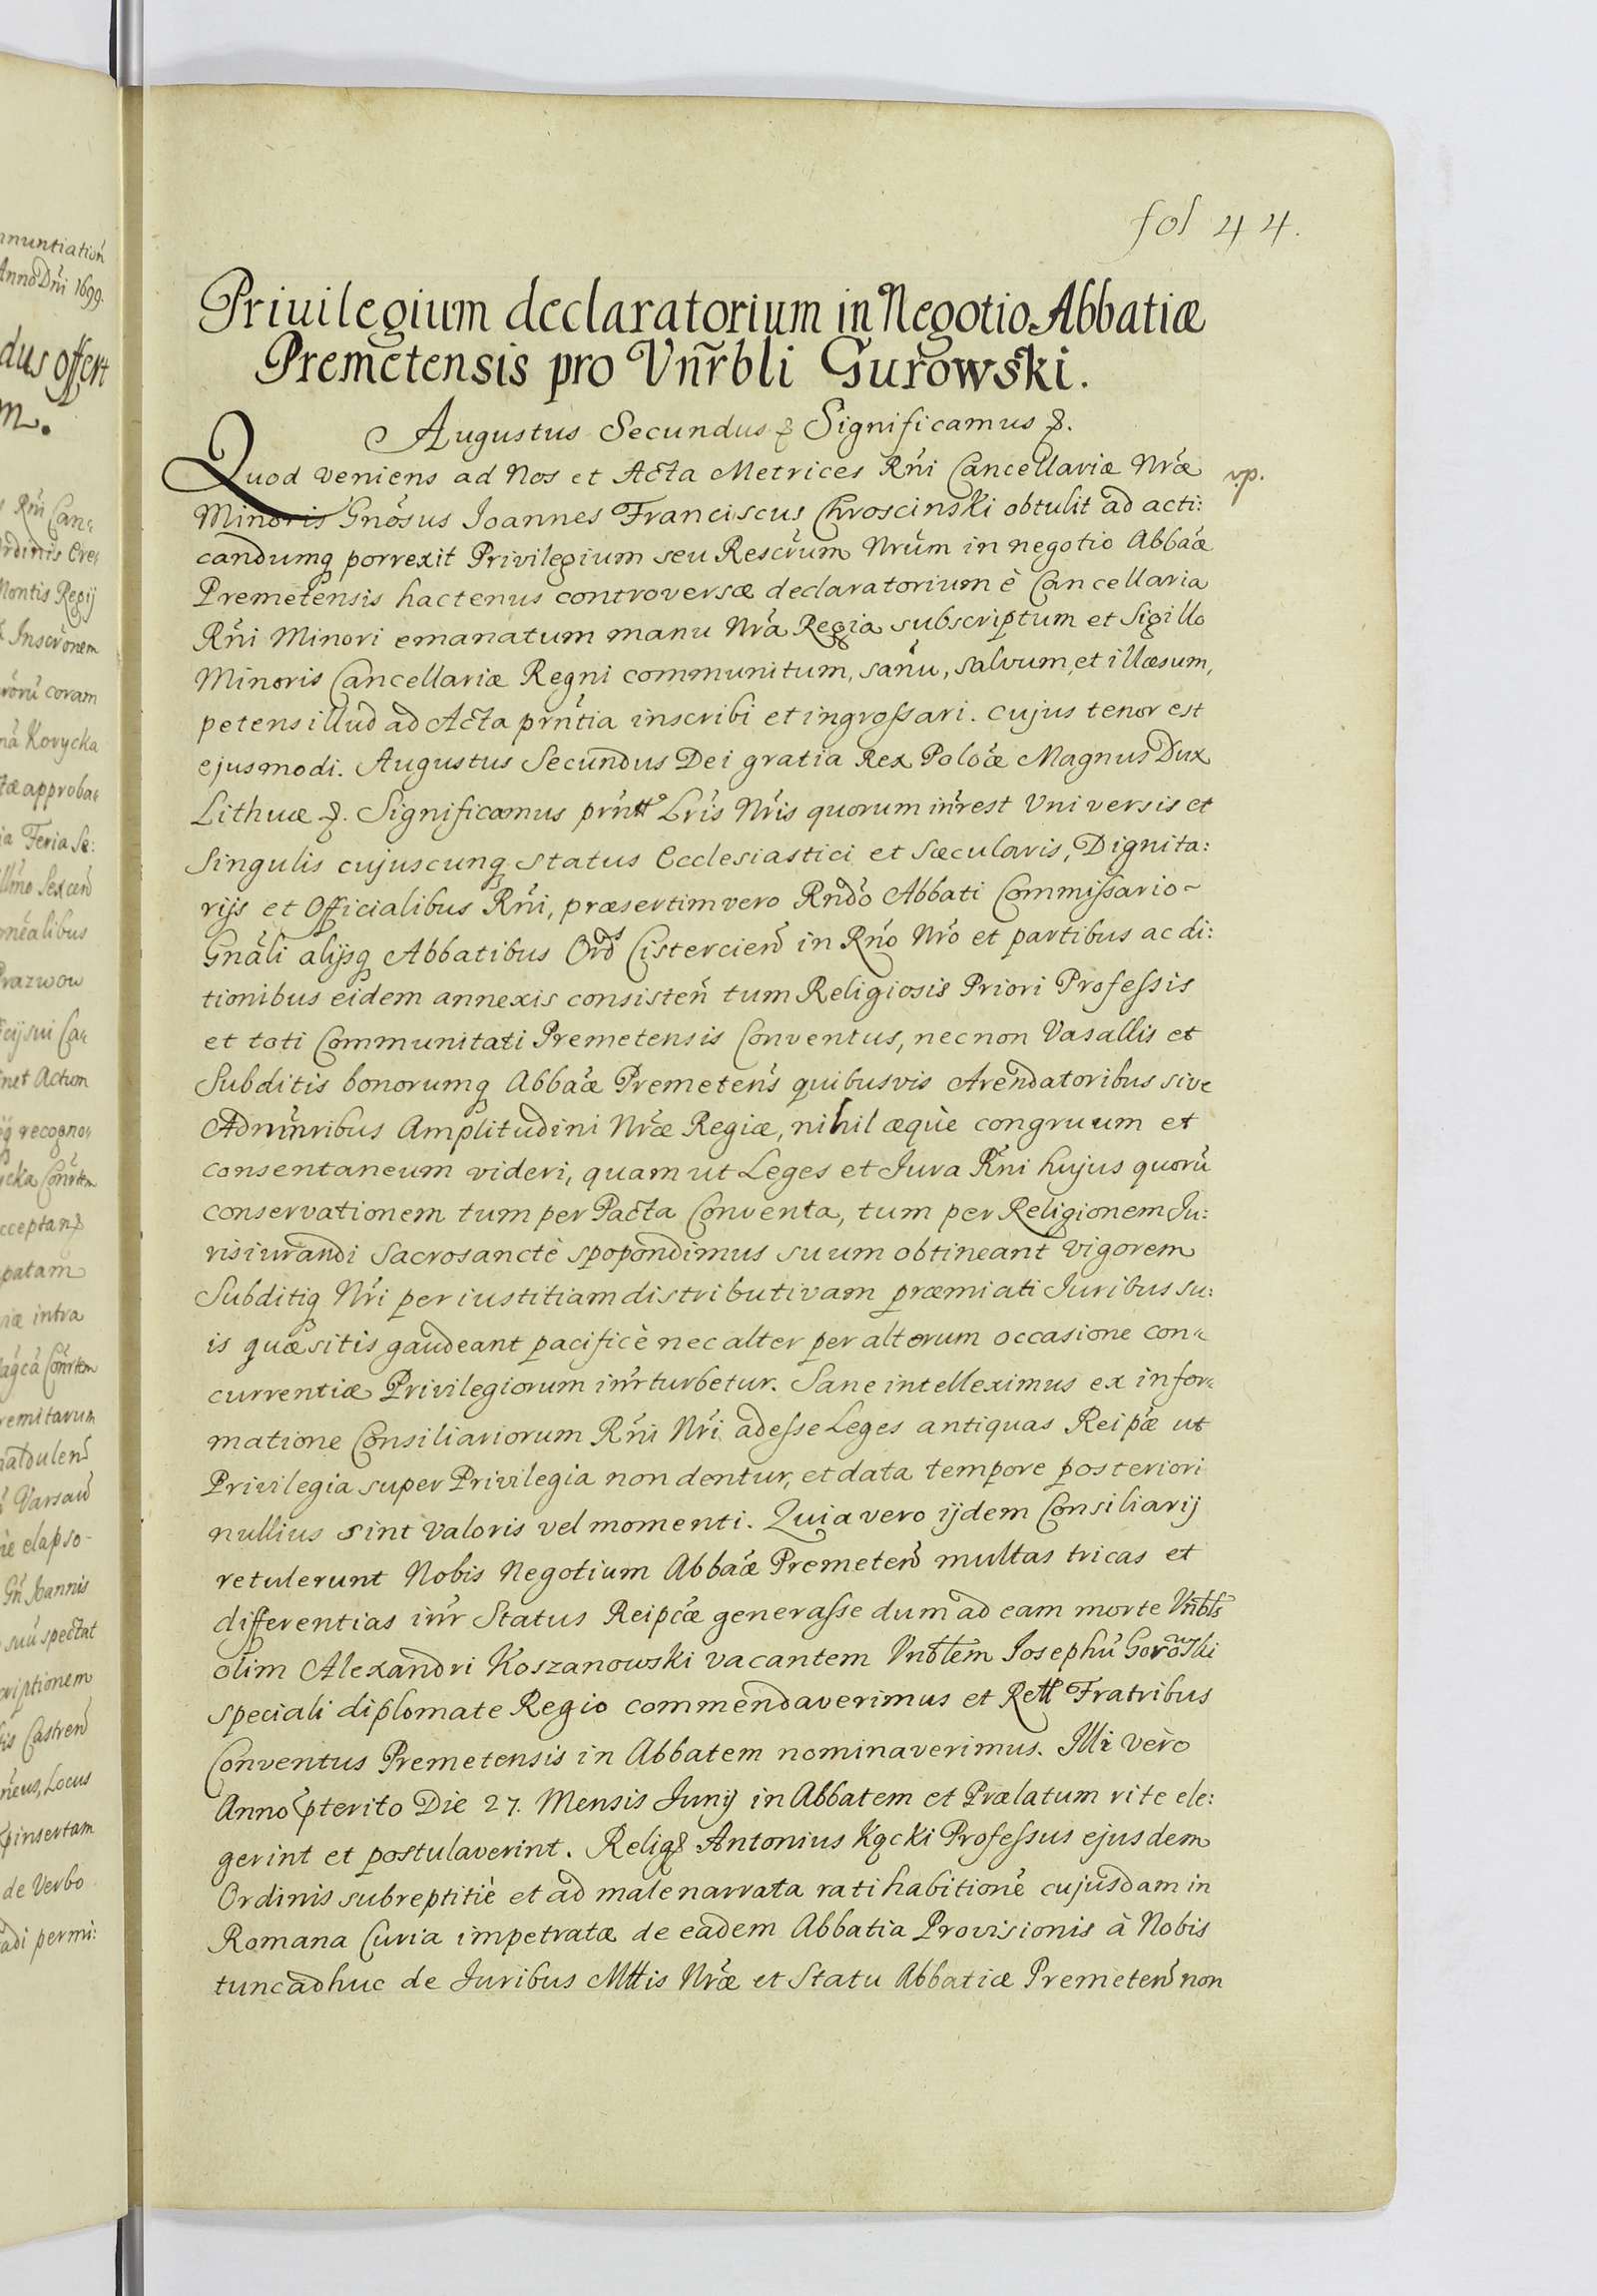 fol 44.
Privilegium declaratorium in Negotio Abbatiæ
Premetensis pro Vnr̃bli Gurowski.
Augustus Secundus &. Significamus &.
Quod veniens ad Nos et Acta Metrices Rñi Cancellariæ Nr̃æ
v.p.
Minoris Gnõsus Joannes Franciscus Chroscinski obtulit ad acti:
candumq porrexit Privilegium seu Rescr̃um Nrũm in negotio Abbãæ
Premetensis hactenus controversæ declaratorium è Cancellaria
Rñi Minori emanatum manu Nr̃a Regia subscriptum et Sigillo
Minoris Cancellariæ Regni communitum, sanũ, salvum, et illæsum,
petens illud ad Acta prñtia inscribi et ingrossari. cujus tenor est
ejusmodi. Augustus Secundus Dei gratia Rex Polõæ Magnus Dux
Lithuæ &. Significamus prñtt° Lr̃is Nr̃is quorum inr̃est Universis et
Singulis cujuscunq status Ecclesiastici et Sæcularis, Dignita:
rijs et Officialibus Rñi, præsertim vero Rndõ Abbati Commissario
Gnãli alijsq Abbatibus Ords Cistercieñ in Rño Nr̃o et partibus ac di:
tionibus eidem annexis consisteñ tum Religiosis Priori Professis
et toti Communitati Premetensis Conventus, necnon Vasallis et
Subditis bonorumq Abbãæ Premeteñs quibusvis Arendatoribus sive
Admiñribus Amplitudini Nr̃æ Regiæ, nihil æquè congruum et
consentaneum videri, quam ut Leges et Jura Rñi hujus quorũ
conservationem tum per Pacta Conventa, tum per Religionem Ju:
risiurandi Sacrosanctè spopondimus suum obtineant vigorem
Subditiq Nr̃i per iustitiam distributivam præmiati Juribus su:
is quæsitis gaudeant pacificè nec alter per alterum occasione con
currentiæ Privilegiorum inr̃turbetur. Sane intelleximus ex infor
matione Consiliariorum Rñi Nr̃i adesse Leges antiquas Reipæ ut
Privilegia super Privilegia non dentur, et data tempore posteriori
nullius sint valoris vel momenti. Quia vero ijdem Consiliarij
retulerunt Nobis Negotium Abbãæ Premeteñ multas tricas et
differentias inr̃ Status Reipcæ generasse dum ad eam morte Vñbls
olim Alexandri Koszanowski vacantem Vnblem Josephũ Gorowski
speciali diplomate Regio commendaverimus et Rell Fratribus
Conventus Premetensis in Abbatem nominaverimus. Illi verò
Anno pterito Die 27. Mensis Junij in Abbatem et Prælatum rite ele:
gerint et postulaverint. Relig& Antonius Kącki Professus ejusdem
Ordinis subreptitiè et ad male narrata ratihabitionẽ cujusdam in
Romana Curia impetratæ de eadem Abbatia Provisionis à Nobis
tunc adhuc de Juribus Mttis Nr̃æ et Statu Abbatiæ Premeteñ non